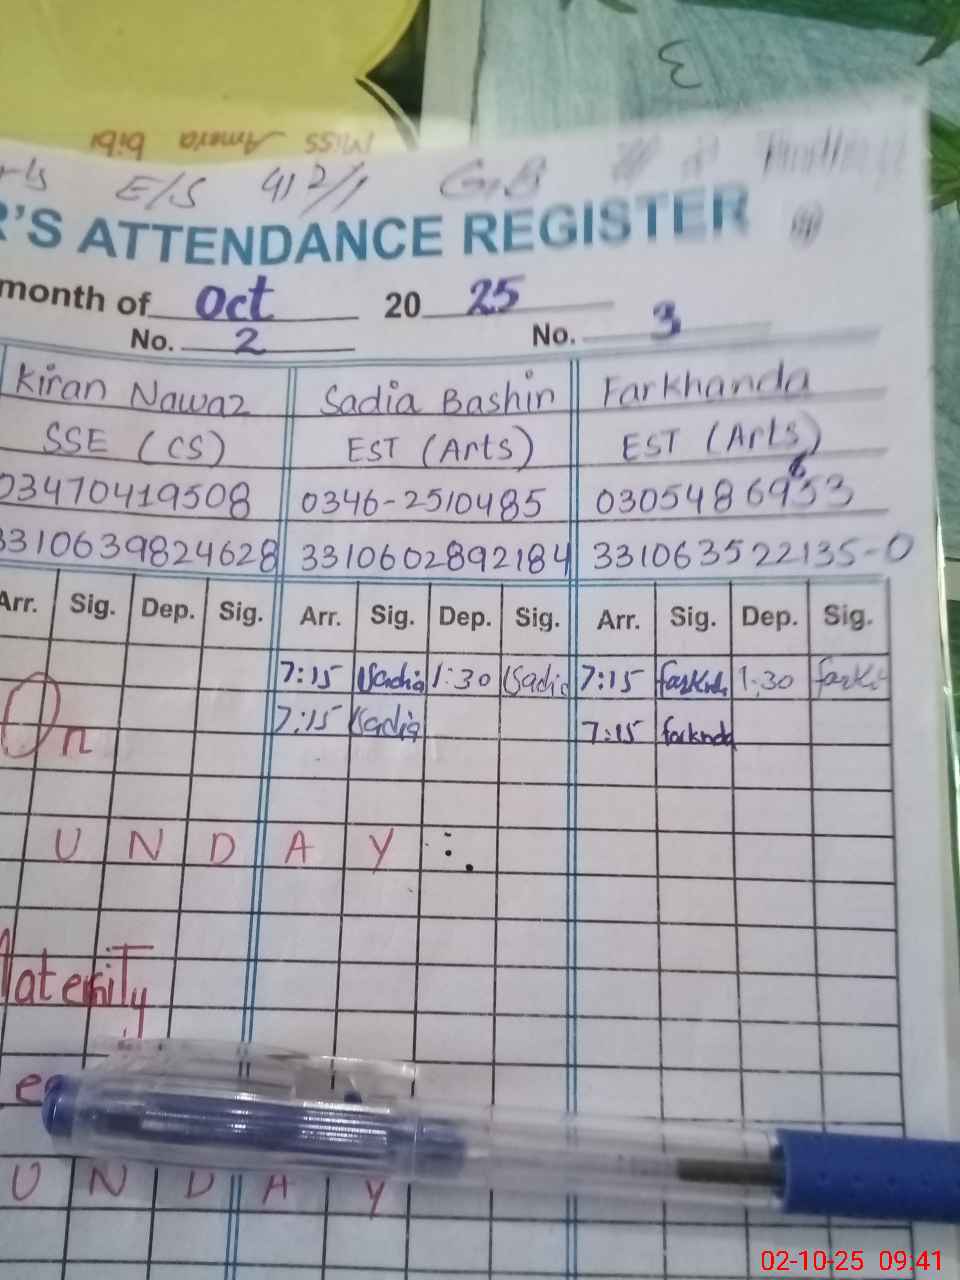 3
Miss Amara bibi
E/S 412/1 G.B
R'S ATTENDANCE REGISTER
month of Oct 2025
No. 2 No. 3
Kiran Nawaz Sadia Bashir Farkhanda
SSE (CS) EST (Arts) EST (Arts)
03470419508 0346-2510485 0305486953
3310639824628 3310602892184 331063522135-0
Arr. Sig. Dep. Sig. Arr. Sig. Dep. Sig. Arr. Sig. Dep. Sig.
7:15 Sadia 1:30 Sadia 7:15 1:30
On 7:15 Sadia 7:15
U N D A Y
Maternity
U N D A Y
02-10-25 09:41